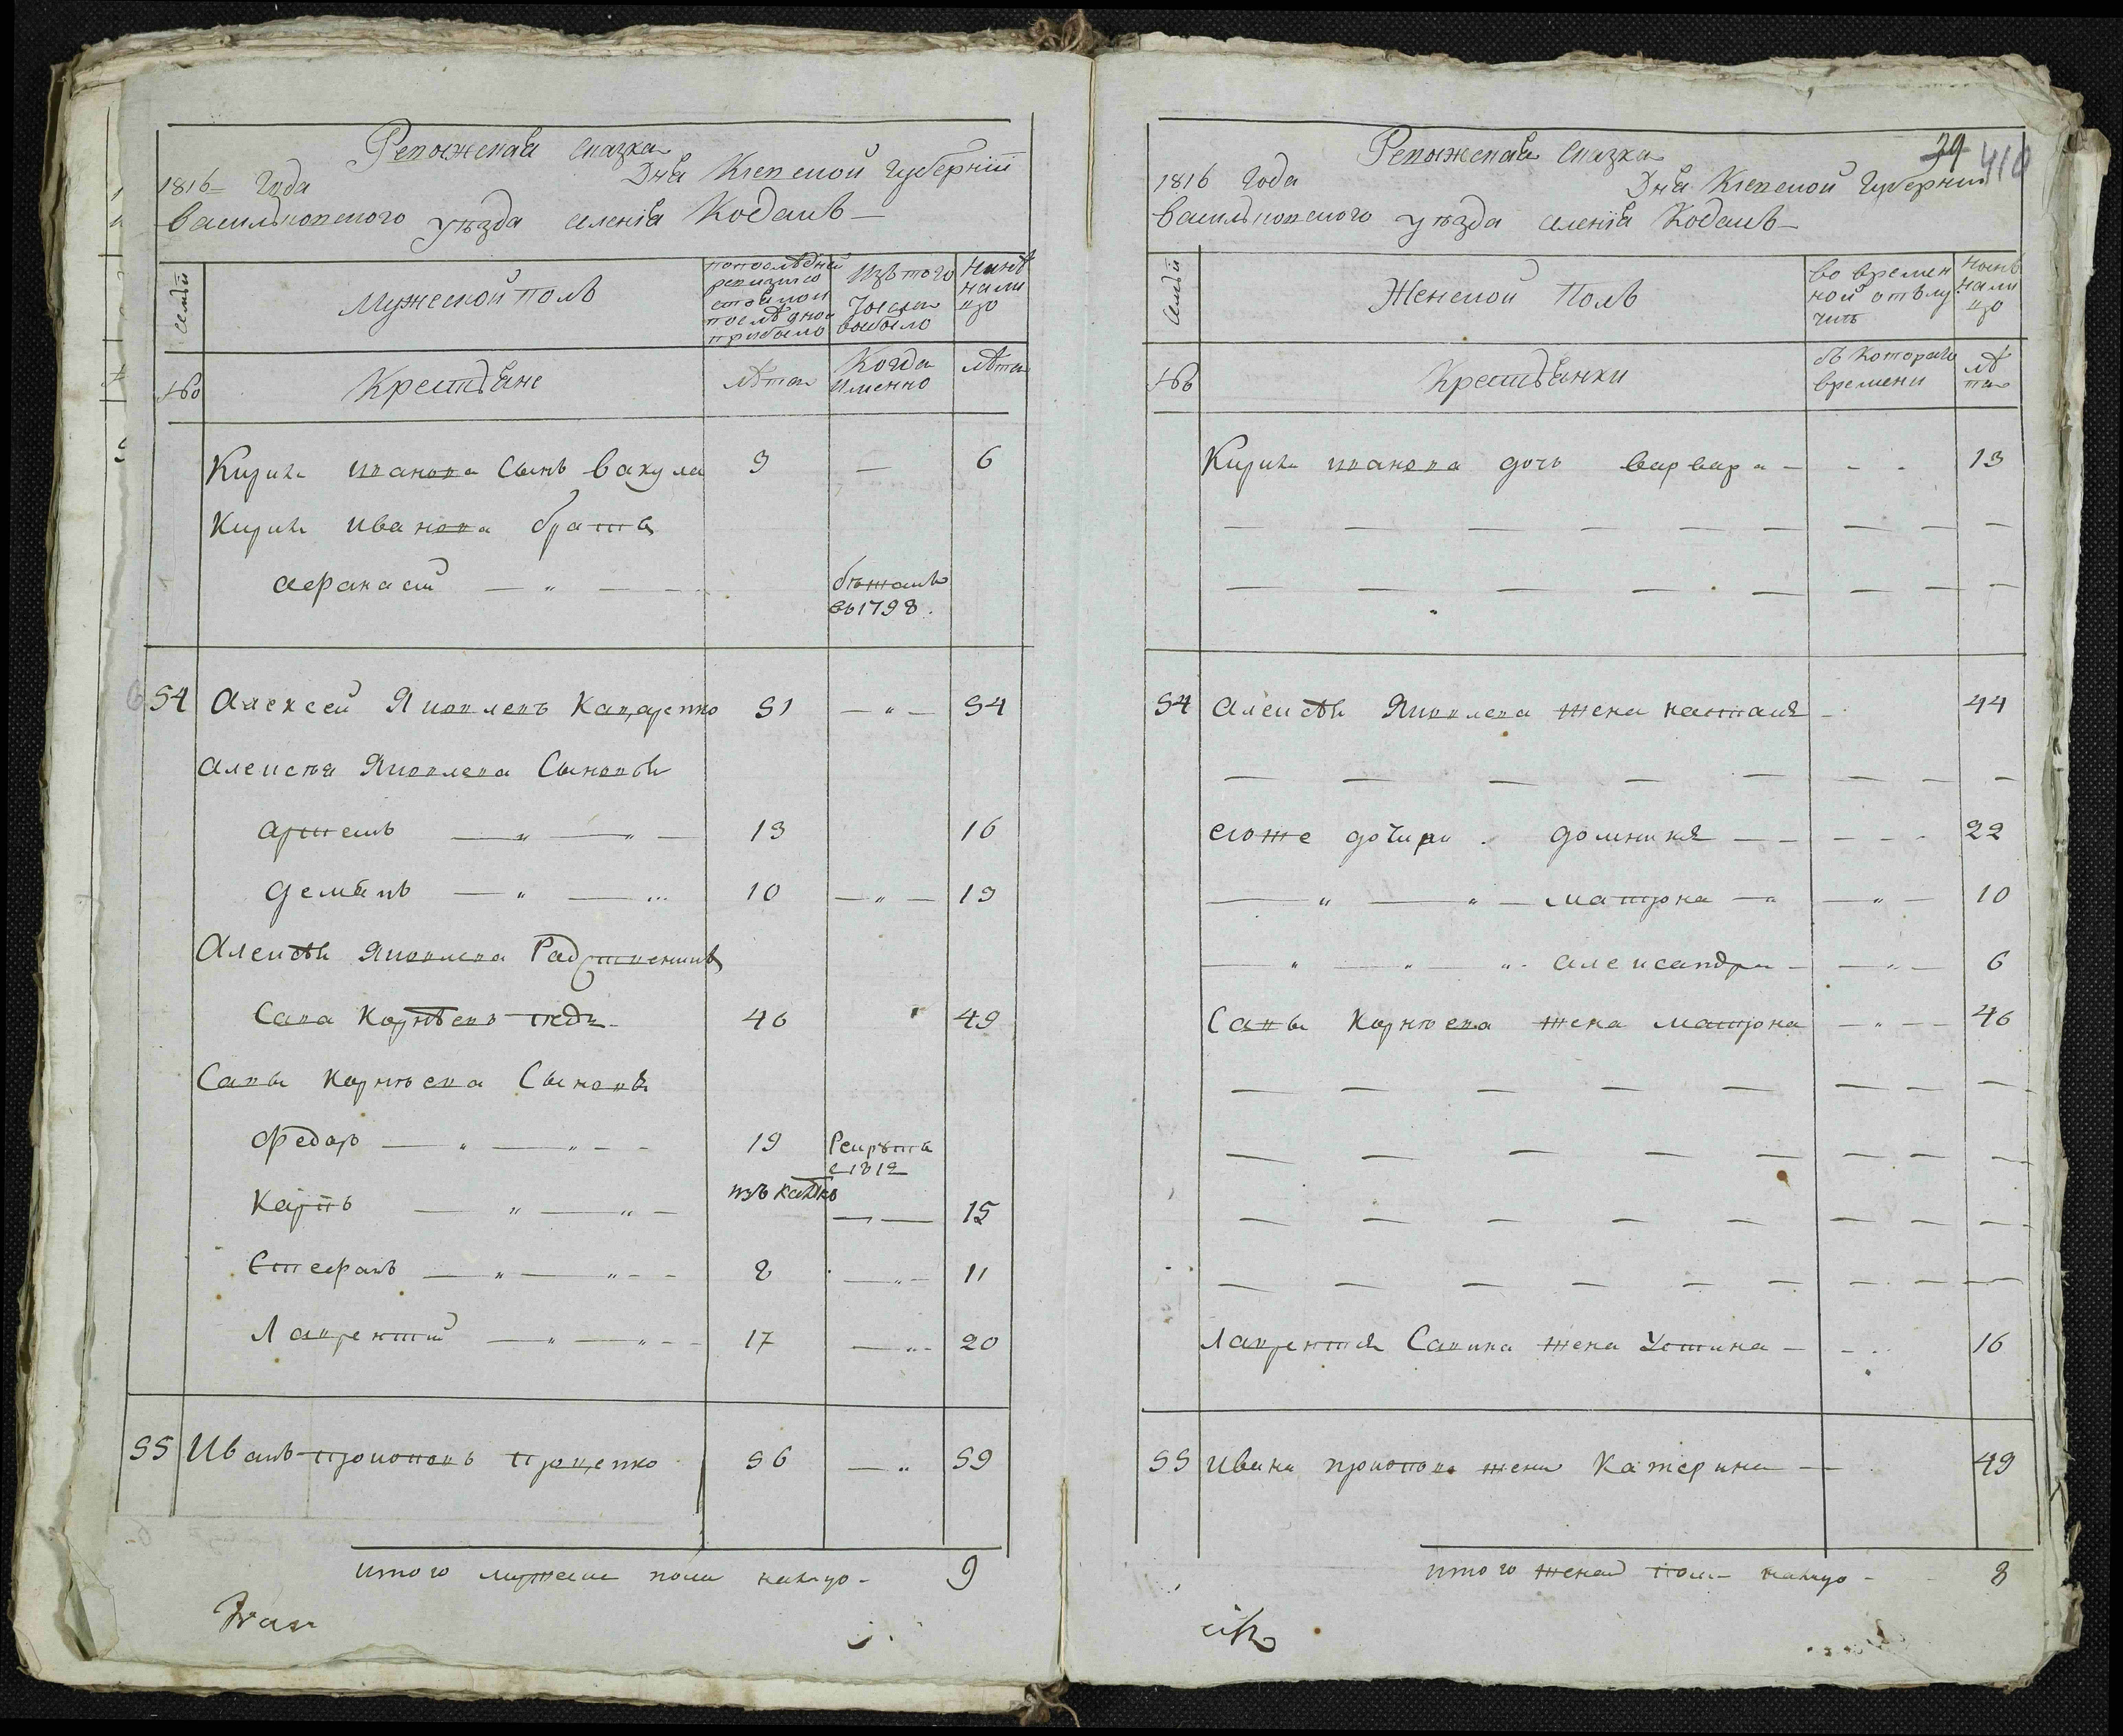 Ревижская сказка
1816 года Дня Киевской Губернiи
Васильковского уезда селенiя Кодакъ
семьи
Мужеской полъ
по последней ревизiи состояло и после оной прибыло
Изъ того числа выбыло
Ныне на лицо
№
Крестьяне
лѣта
Когда именно
лѣта
Кирила Иванова сынъ Вакула 3 — 6
Кирила Иванова братъ
Афанасiй — „ — бѣжалъ въ 1798.
54 Алексей Яковлевъ 51 — „ — 54
Алексея Яковлева сыновья
Артемъ — „ — „ — 13 16
Демянъ — „ — 10 — „ — 13
Алексея Яковлева Родственникъ
Сава Корнѣевъ 46 49
Савы Корнѣева сыновья
Федоръ — „ — „ — 19 Рекрутъ 1812
Карпъ — „ — „ — — 15
Стефанъ — „ — „ — 8 — „ — 11
Лаврентiй — „ — „ — 17 — „ — 20
55 Иванъ Прокоповъ Проценко 56 — „ 59
Итого мужеска пола налицо - 9
Ревижская сказка
39 410
1816 года Дня Киевской Губернiи
Васильковского уезда селенiя Кодакъ
семьи
Женской Полъ
во времен
ной отлу
чкѣ
Ныне
на ли
цо
№
Крестьянки
съ которого
времени
лѣ
та
Кирила Иванова дочь Варвара 13
54 Алексѣя Яковлева жена Наталiя 44
его же дочери Домникiя 22
— „ — „ — Матрона — „ — „ — 10
— „ — „ — „ Александра — „ — 6
Савы Корнѣева жена Матрона — „ — 46
Лаврентiя Савина жена Устина — 16
55 Ивана Прокопова жена Катерина — 49
Итого женска пола налицо - 8